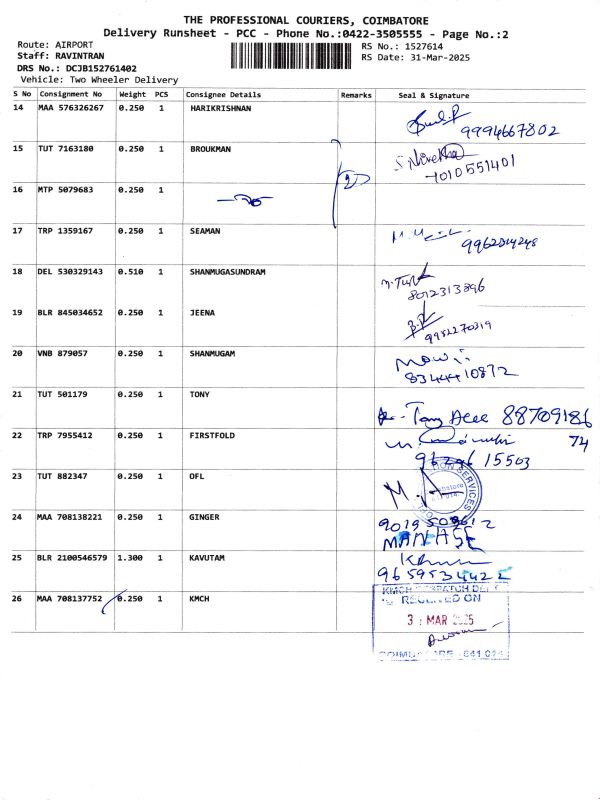 THE PROFESSIONAL COURIERS, COIMBATORE
Delivery Runsheet - PCC - Phone No.:0422-3505555 - Page No.:2
Route: AIRPORT
RS No.: 1527614
Staff: RAVINTRAN
RS Date: 31-Mar-2025
DRS No.: DCJB152761402
Vehicle: Two Wheeler Delivery
S No Consignment No Weight PCS Consignee Details Remarks Seal & Signature
14 MAA 576326267 0.250 1 HARIKRISHNAN
9994667802
15 TUT 7163180 0.250 1 BROUKMAN
S. Nivetha
7010551401
16 MTP 5079683 0.250 1
2
17 TRP 1359167 0.250 1 SEAMAN
18 DEL 530329143 0.510 1 SHANMUGASUNDRAM
8012313896
19 BLR 845034652 0.250 1 JEENA
20 VNB 879057 0.250 1 SHANMUGAM
8344410872
21 TUT 501179 0.250 1 TONY
88709186
74
22 TRP 7955412 0.250 1 FIRSTFOLD
15503
23 TUT 882347 0.250 1 OFL
SERVICES
24 MAA 708138221 0.250 1 GINGER
25 BLR 2100546579 1.300 1 KAVUTAM
9659534422
26 MAA 708137752 0.250 1 KMCH
RECEIVED ON
MAR